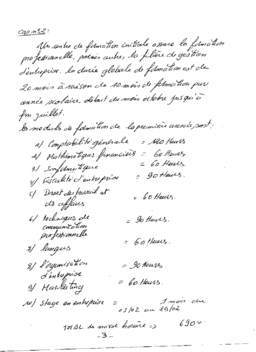 Cas n°2:
Un centre de formation initiale assure la formation
professionnelle, parmi autre, la filière de gestion
d'entreprise. la durée globale de formation est de
20 mois à raison de 10 mois de formation par
année scolaire. début du mois octobre jusqu'à
fin juillet.
les modules de formation de la première année, sont:
1/ Comptabilité générale = 180 Heures
2/ Mathématiques financières = 60 Heures
3/ Informatique = 60 Heures
4/ Fiscalité d'entreprise = 90 Heures
5/ Droit du travail et
des affaires = 60 Heures
6/ techniques de
communication
professionnelle = 90 Heures.
7/ langues = 60 Heures.
8/ l'organisation
d'entreprise = 90 Heures.
9/ Marketing = 60 Heures.
10/ Stage en entreprise = 1 mois du
au
total de masse horaire => 690
- 3 -